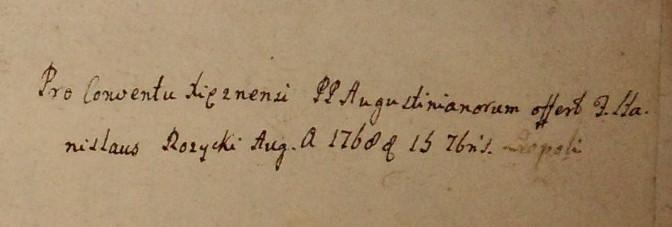 Pro Conventu Xięznensi PP Augustinianorum offert F. Sta-
nislaus Rozycki Aug. A 1768 d 15 7bris. Leopoli